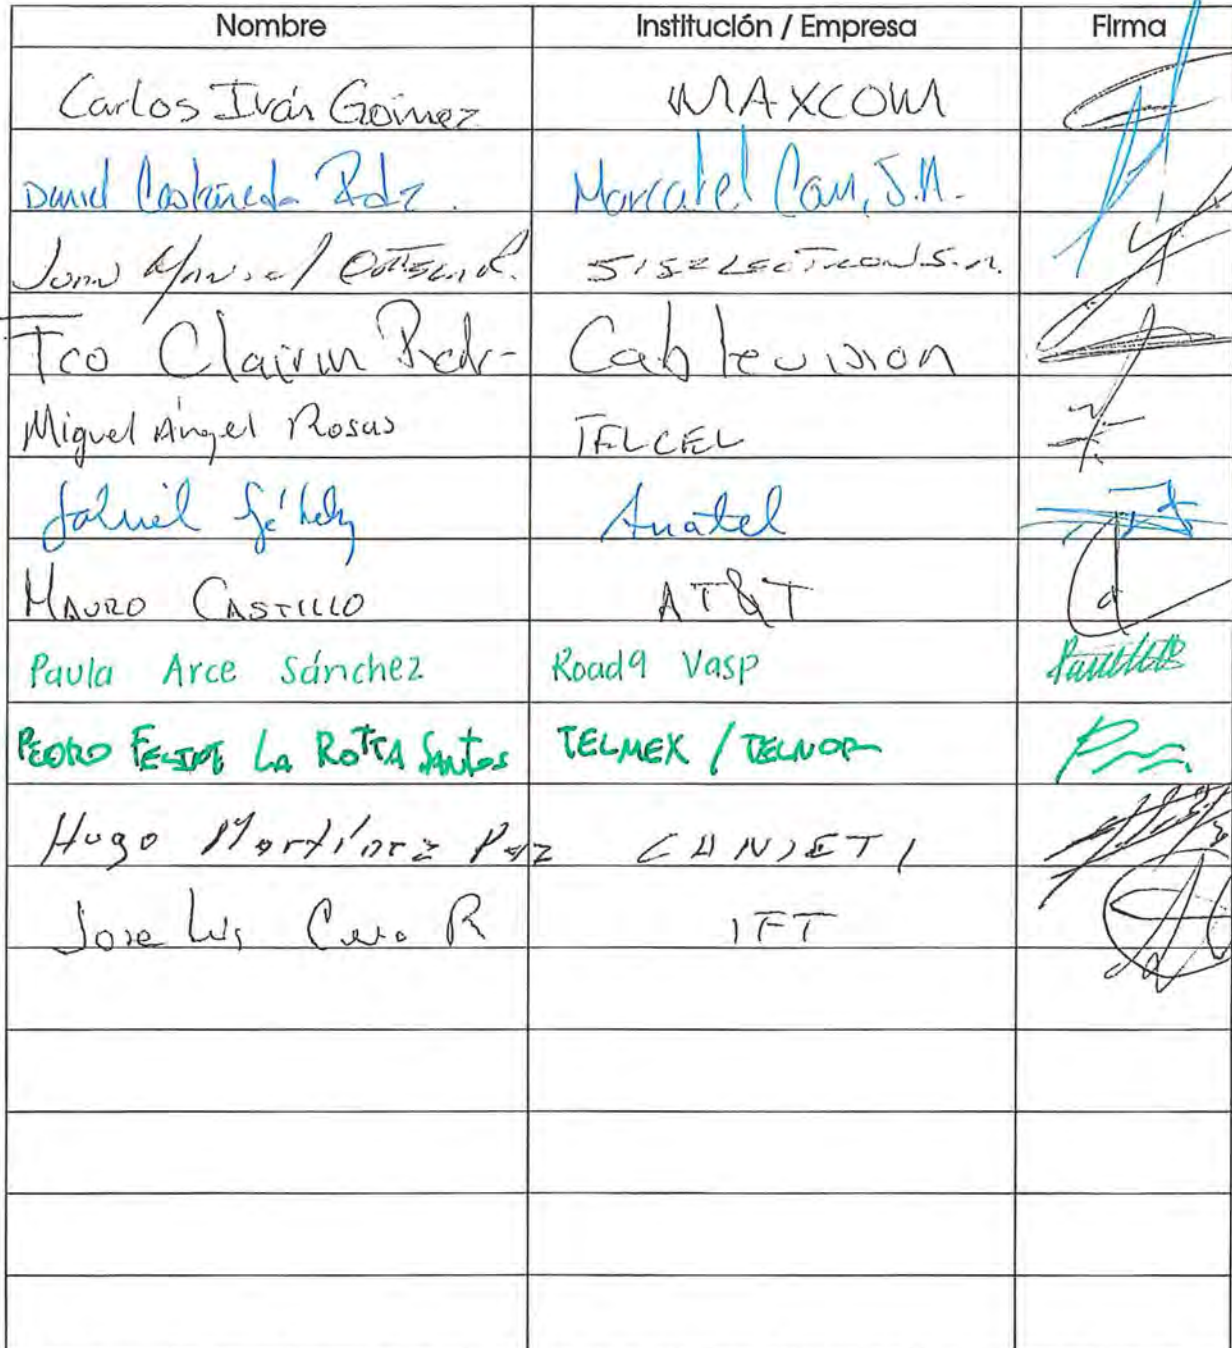 Nombre Institución / Empresa Firma
Carlos Iván Gómez MAXCOM
David Castañeda Rdz. Marcatel Com, S.A.
Juan Manuel R. SISELECTRON S.A.
Fco Clairin Rdr- Cablevision
Miguel Angel Rosas TELCEL
Gabriel Anatel
MAURO CASTILLO AT&T
Paula Arce Sánchez Road9 Vasp
PEDRO FELIPE LA ROTTA SANTOS TELMEX / TELNOR
Hugo Martínez CANIETI
Jose Luis R IFT